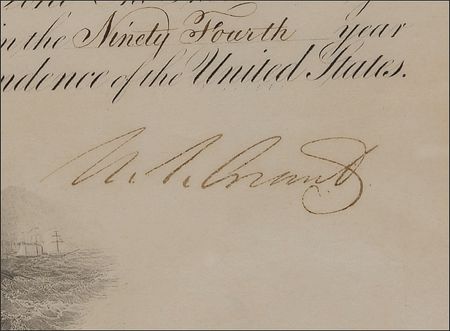 in the Ninety Fourth year
ndence of the United States.
U. S. Grant